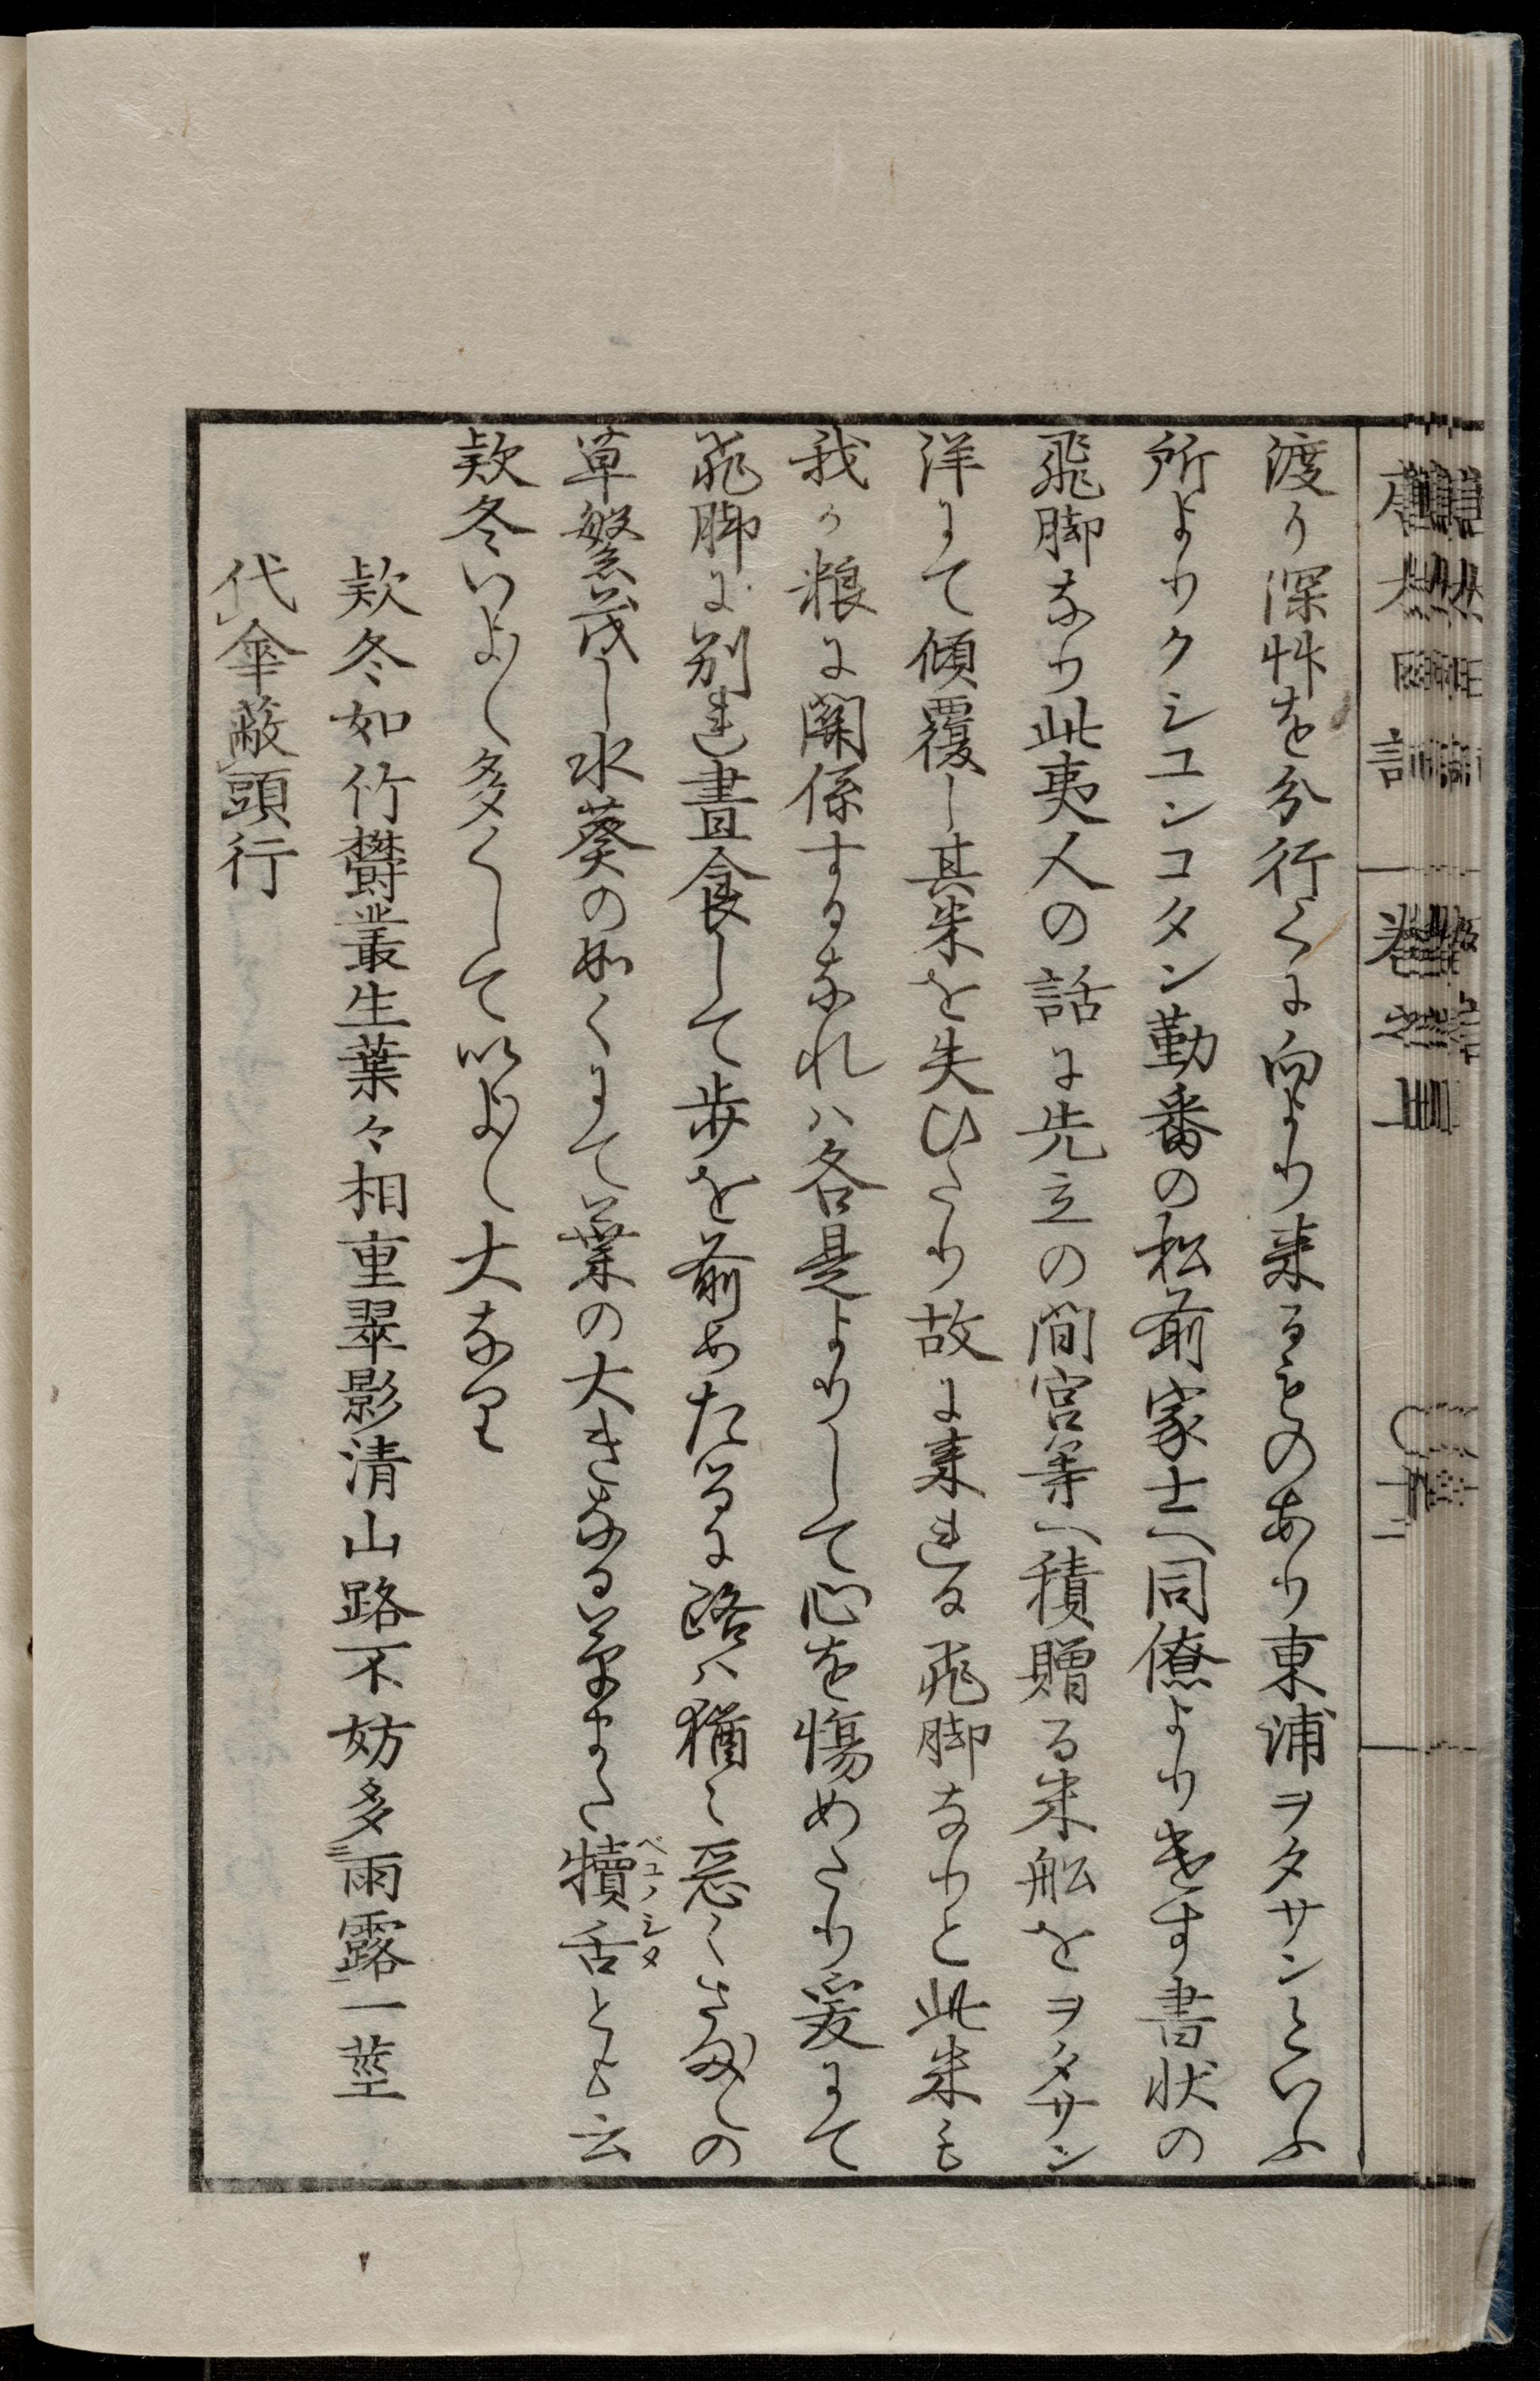 渡り深艸を分行くに向より来るものあり東浦ヲタサンといふ
所よりクシユンコタン勤番の松前家士へ同僚よりをす書状の
飛脚なり此夷人の話に先立の間宮等へ積贈る米舩をヲタサン
洋にて傾覆し其米を失ひたり故に来れる飛脚なりと此米も
我か粮に関係するなれハ各是よりして心を傷めたり爰にて
飛脚に別れ晝食して歩を前めたるに路ハ猶々悪くさましの
草繁茂し水葵の如くにて葉の大きなる草また犢舌とも云
ベコノシタ
欵冬いよ〳〵多くして以よ〳〵大なり
欵冬如竹欝叢生葉々相重翠影清山路不妨多雨露一莖
代傘蔽頭行
卷之上
十二